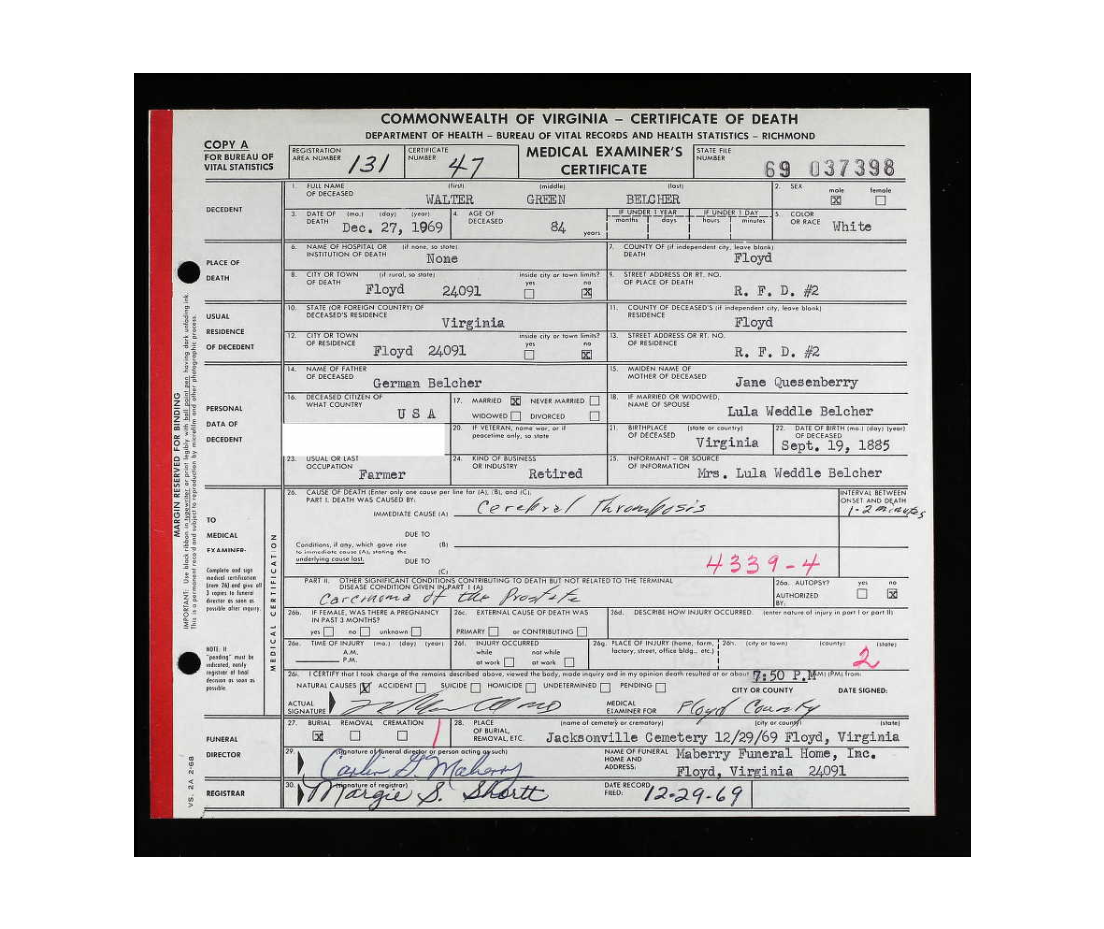 COMMONWEALTH OF VIRGINIA – CERTIFICATE OF DEATH
DEPARTMENT OF HEALTH – BUREAU OF VITAL RECORDS AND HEALTH STATISTICS – RICHMOND
COPY A
FOR BUREAU OF VITAL STATISTICS
REGISTRATION AREA NUMBER 131
CERTIFICATE NUMBER 47
MEDICAL EXAMINER'S CERTIFICATE
STATE FILE NUMBER 69 037398
DECEDENT
1. FULL NAME OF DECEASED (first) (middle) (last)
WALTER GREEN BELCHER
2. SEX male ☒ female ☐
3. DATE OF DEATH (mo.) (day) (year) Dec. 27, 1969
4. AGE OF DECEASED 84 years
IF UNDER 1 YEAR months days IF UNDER 1 DAY hours minutes
5. COLOR OR RACE White
PLACE OF DEATH
6. NAME OF HOSPITAL OR INSTITUTION OF DEATH (if none, so state) None
7. COUNTY OF DEATH (if independent city, leave blank) Floyd
8. CITY OR TOWN OF DEATH (if rural, so state) Floyd 24091
inside city or town limits? yes ☐ no ☒
9. STREET ADDRESS OR RT. NO. OF PLACE OF DEATH R. F. D. #2
USUAL RESIDENCE OF DECEDENT
10. STATE (OR FOREIGN COUNTRY) OF DECEASED'S RESIDENCE Virginia
11. COUNTY OF DECEASED'S RESIDENCE (if independent city, leave blank) Floyd
12. CITY OR TOWN OF RESIDENCE Floyd 24091
inside city or town limits? yes ☐ no ☒
13. STREET ADDRESS OR RT. NO. OF RESIDENCE R. F. D. #2
PERSONAL DATA OF DECEDENT
14. NAME OF FATHER OF DECEASED German Belcher
15. MAIDEN NAME OF MOTHER OF DECEASED Jane Quesenberry
16. DECEASED CITIZEN OF WHAT COUNTRY U S A
17. MARRIED ☒ NEVER MARRIED ☐ WIDOWED ☐ DIVORCED ☐
18. IF MARRIED OR WIDOWED, NAME OF SPOUSE Lula Weddle Belcher
20. IF VETERAN, name war, or if peacetime only, so state
21. BIRTHPLACE OF DECEASED (state or country) Virginia
22. DATE OF BIRTH (mo.) (day) (year) OF DECEASED Sept. 19, 1885
23. USUAL OR LAST OCCUPATION Farmer
24. KIND OF BUSINESS OR INDUSTRY Retired
25. INFORMANT – OR SOURCE OF INFORMATION Mrs. Lula Weddle Belcher
TO MEDICAL EXAMINER:
Complete and sign medical certification (item 26) and give all 3 copies to funeral director as soon as possible after inquiry.
NOTE: If "pending" must be indicated, notify registrar of final decision as soon as possible.
MEDICAL CERTIFICATION
26. CAUSE OF DEATH (Enter only one cause per line for (A), (B), and (C).
PART I. DEATH WAS CAUSED BY:
IMMEDIATE CAUSE (A) Cerebral Thrombosis
INTERVAL BETWEEN ONSET AND DEATH
1-2 minutes
DUE TO
Conditions, if any, which gave rise to immediate cause (A), stating the underlying cause last. (B)
DUE TO
(C)
4339-4
PART II. OTHER SIGNIFICANT CONDITIONS CONTRIBUTING TO DEATH BUT NOT RELATED TO THE TERMINAL DISEASE CONDITION GIVEN IN PART I (A)
Carcinoma of the Prostate
26a. AUTOPSY? yes ☐ no ☒
AUTHORIZED BY:
26b. IF FEMALE, WAS THERE A PREGNANCY IN PAST 3 MONTHS? yes ☐ no ☐ unknown ☐
26c. EXTERNAL CAUSE OF DEATH WAS PRIMARY ☐ or CONTRIBUTING ☐
26d. DESCRIBE HOW INJURY OCCURRED. (enter nature of injury in part I or part II)
26e. TIME OF INJURY (mo.) (day) (year) A.M. P.M.
26f. INJURY OCCURRED while at work ☐ not while at work ☐
26g. PLACE OF INJURY (home, farm, factory, street, office bldg., etc.)
26h. (city or town) (county) (state)
2
26i. I CERTIFY that I took charge of the remains described above, viewed the body, made inquiry and in my opinion death resulted at or about 7:50 P.M (AM) (PM) from:
NATURAL CAUSES ☒ ACCIDENT ☐ SUICIDE ☐ HOMICIDE ☐ UNDETERMINED ☐ PENDING ☐
CITY OR COUNTY DATE SIGNED:
ACTUAL SIGNATURE
MEDICAL EXAMINER FOR Floyd County
FUNERAL DIRECTOR
27. BURIAL ☒ REMOVAL ☐ CREMATION ☐
28. PLACE OF BURIAL, REMOVAL, ETC. (name of cemetery or crematory) (city or county) (state)
Jacksonville Cemetery 12/29/69 Floyd, Virginia
29. (signature of funeral director or person acting as such)
Carlin G. Maberry
NAME OF FUNERAL HOME AND ADDRESS: Maberry Funeral Home, Inc.
Floyd, Virginia 24091
REGISTRAR
30. (signature of registrar)
Margie S. Shortt
DATE RECORD FILED: 12-29-69
MARGIN RESERVED FOR BINDING
IMPORTANT: Use black ribbon in typewriter or print legibly with ball point pen, having dark unfading ink.
This is a permanent record and subject to reproduction by microfilm and other photographic process.
VS. 2A 2-68